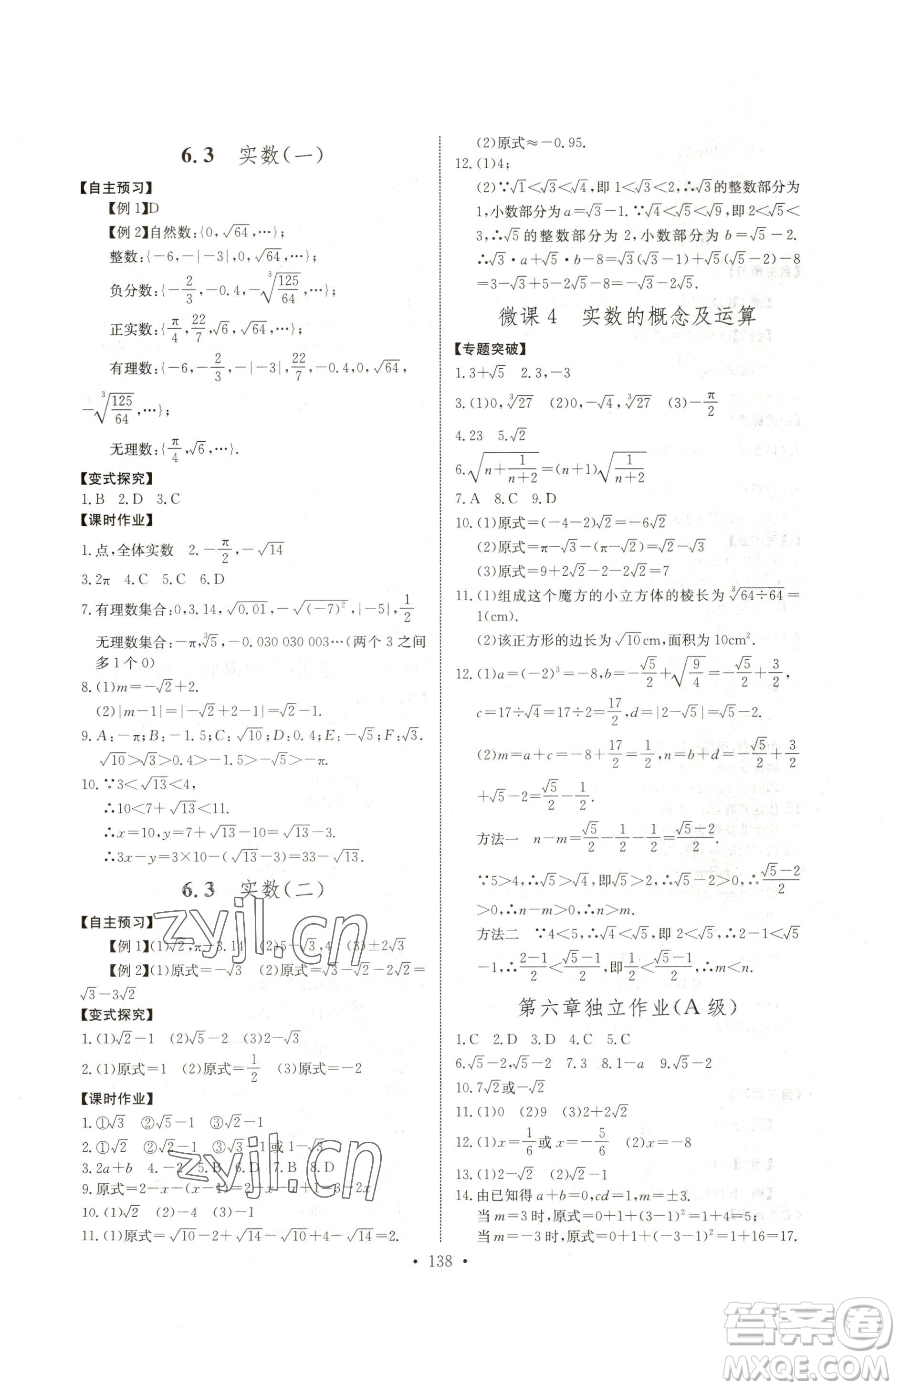 6.3 实数(一)
【自主预习】
【例1】D
【例2】自然数:{0,√64,…};
整数:{-6,-|-3|,0,√64,…};
负分数:{-2/3,-0.4,-∛(125/64),…};
正实数:{π/4,22/7,√6,√64,…};
有理数:{-6,-2/3,-|-3|,22/7,-0.4,0,√64,
-∛(125/64),…};
无理数:{π/4,√6,…}.
【变式探究】
1.B 2.D 3.C
【课时作业】
1.点,全体实数 2.-π/2,-√14
3.2π 4.C 5.C 6.D
7.有理数集合:0,3.14,√0.01,-√(-7)²,|-5|,1/2
无理数集合:-π,∛5,-0.030 030 003…(两个3之间
多1个0)
8.(1)m=-√2+2.
(2)|m-1|=|-√2+2-1|=√2-1.
9.A:-π;B:-1.5;C:√10;D:0.4;E:-√5;F:√3.
√10>√3>0.4>-1.5>-√5>-π.
10.∵3<√13<4,
∴10<7+√13<11.
∴x=10,y=7+√13-10=√13-3.
∴3x-y=3×10-(√13-3)=33-√13.
6.3 实数(二)
【自主预习】
【例1】(1)√2,π-3.14 (2)5-√3,4 (3)±√2
【例2】(1)原式=-√3 (2)原式=√3-2√2-√2=
√3-3√2
【变式探究】
1.(1)√2-1 (2)√3-√2 (3)2-√3
2.(1)原式=1/2 (2)原式=√3-2
【课时作业】
1.①√3 ②√5-1 ③√2-1
2.①√5 ②√2-1 ③√3-1或1-√3
3.2a+b 4.-2 5.B 6.D 7.B 8.D
9.原式=2-x-(x-1)=2-x-x+1=3-2x.
10.(1)√2 (2)-4 (3)-1
11.(1)原式=√10-2+√14-√10+4-√14=2.
(2)原式≈-0.95.
12.(1)4;
(2)∵√1<√3<√4,即1<√3<2,∴√3的整数部分为
1,小数部分为a=√3-1.∵√4<√5<√9,即2<√5<
3,∴√5的整数部分为2,小数部分为b=√5-2.
∴√3·a+√5·b-8=√3(√3-1)+√5(√5-2)-8=
3-√3+5-2√5-8=-√3-2√5.
微课4 实数的概念及运算
【专题突破】
1.3+√5 2.3,-3
3.(1)0,∛27 (2)0,-√4,∛27 (3)-π/2
4.23 5.√2
6.√(n+1/(n+2))=(n+1)√(1/(n+2))
7.A 8.C 9.D
10.(1)原式=(-4-2)√2=-6√2
(2)原式=π-√3-(π-√2)=√2-√3
(3)原式=9+2√2-2√2=9
11.(1)组成这个魔方的小立方体的棱长为∛(64÷64)=
1(cm).
(2)该正方形的边长为√10cm,面积为10cm².
12.(1)a=(-2)³=-8,b=-√5/2+√(9/4)=-√5/2+3/2,
c=17÷√4=17÷2=17/2,d=|2-√5|=√5-2.
(2)m=a+c=-8+17/2=1/2,n=b+d=-√5/2+3/2
+√5-2=√5/2-1/2.
方法一 n-m=√5/2-1/2-1/2=(√5-2)/2.
∵5>4,∴√5>√4,即√5>2,∴√5-2>0,∴(√5-2)/2
>0,∴n-m>0,∴m<n.
方法二 ∵4<5,∴√4<√5,即2<√5,∴2-1<√5
-1,∴(2-1)/2<(√5-1)/2,即1/2<√5/2-1/2,∴m<n.
第六章独立作业(A级)
1.C 2.D 3.D 4.C 5.C
6.√5-2,√5-2 7.3 8.1-a 9.√5-2
10.7√2或-√2
11.(1)0 (2)9 (3)2+√2
12.(1)x=1/6或x=-5/6 (2)x=-8
13.(1)2-√2 (2)√2-1
14.由已知得a+b=0,cd=1,m=±3.
当m=3时,原式=0+1+(3-1)²=1+4=5;
当m=-3时,原式=0+1+(-3-1)²=1+16=17.
• 138 •
zyjl.cn
zyjl.cn
答案圈
MXQE.COM